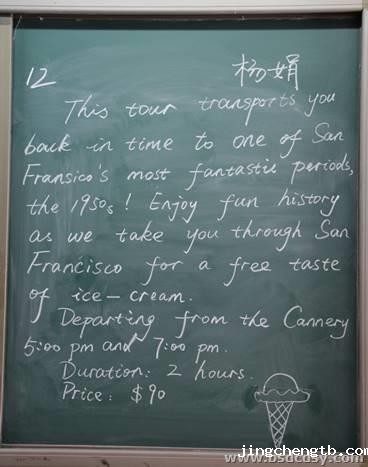 12 杨娟
This tour transports you
back in time to one of San
Fransico's most fantastic periods,
the 1950s! Enjoy fun history
as we take you through San
Francisco for a free taste
of ice-cream.
Departing from the Cannery
5:00 pm and 7:00 pm.
Duration: 2 hours.
Price: $90
www.bsdcdsy.com
jingchengtb.com